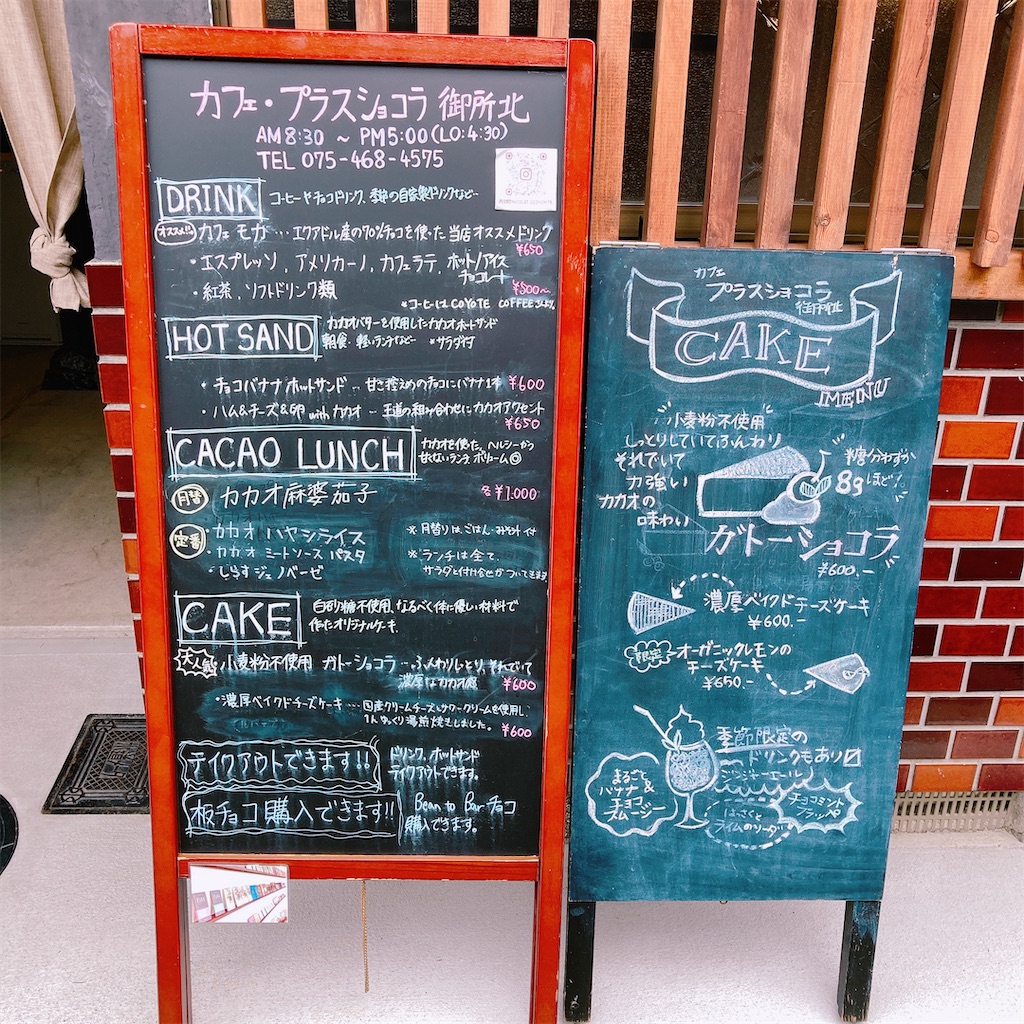 カフェ・プラスショコラ 御所北
AM8:30 ～ PM5:00(LO:4:30)
TEL 075-468-4575
DRINK コーヒーやチョコドリンク、季節の自家製ドリンクなど…
オススメ!! カフェ モカ … エクアドル産の70%チョコを使った 当店オススメドリンク
¥650
・エスプレッソ, アメリカーノ, カフェラテ, ホット/アイス
チョコレート
・紅茶, ソフトドリンク類 ¥500～
*コーヒーは COYOTE COFFEE
HOT SAND カカオバターを使用したカカオホットサンド
朝食・軽いランチなど… *サラダ付
・チョコバナナ ホットサンド … 甘さ控えめのチョコにバナナ1本 ¥600
・ハム&チーズ& with カカオ … 王道の組み合わせにカカオアクセント
¥650
CACAO LUNCH カカオを使った、ヘルシーかつ
甘くないランチ ボリューム◎
月替 カカオ麻婆茄子 各¥1.000
定番 ・カカオ ハヤシライス
・カカオ ミートソース パスタ
・しらす ジェノベーゼ
※月替りは、ごはん・みそ汁付
※ランチは全て、
サラダと付け合せがついてきます
CAKE 白砂糖不使用、なるべく体に優しい材料で
作ったオリジナルケーキ。
大人気 小麦粉不使用 ガトーショコラ … ふんわりしっとり、それでいて
濃厚なカカオ感 ¥600
・濃厚ベイクドチーズケーキ … 国産クリームチーズとサワークリームを使用し、
じっくり湯煎焼きしました。 ¥600
テイクアウトできます!! ドリンク、ホットサンド
テイクアウトできます。
板チョコ購入できます!! Bean to Bar チョコ
購入できます。
カフェ
プラスショコラ
御所北
CAKE
MENU
小麦粉不使用
しっとりしていてふんわり
それでいて
力強い
カカオの
味わい
糖分わずか
8gほど!
ガトーショコラ
¥600.-
濃厚ベイクドチーズケーキ
¥600.-
限定 オーガニックレモンの
チーズケーキ
¥650.-
季節限定の
ドリンクもあり〼
まるごと
バナナ&
チョコ
スムージー
ジンジャーエール
チョコミント
フラッペ
はっさくと
ライムのソーダ